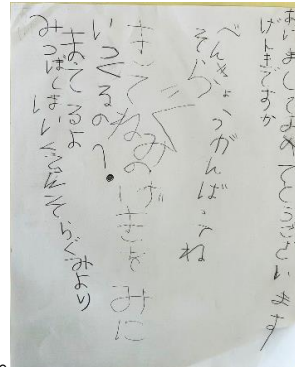 あけましておめでとうございます
げんきですか
べんきょうがんばってね
そらぐ
きてねみのげきをみに
いつくるの〜?
まってるよ
みつばちほいくえんそらぐみより